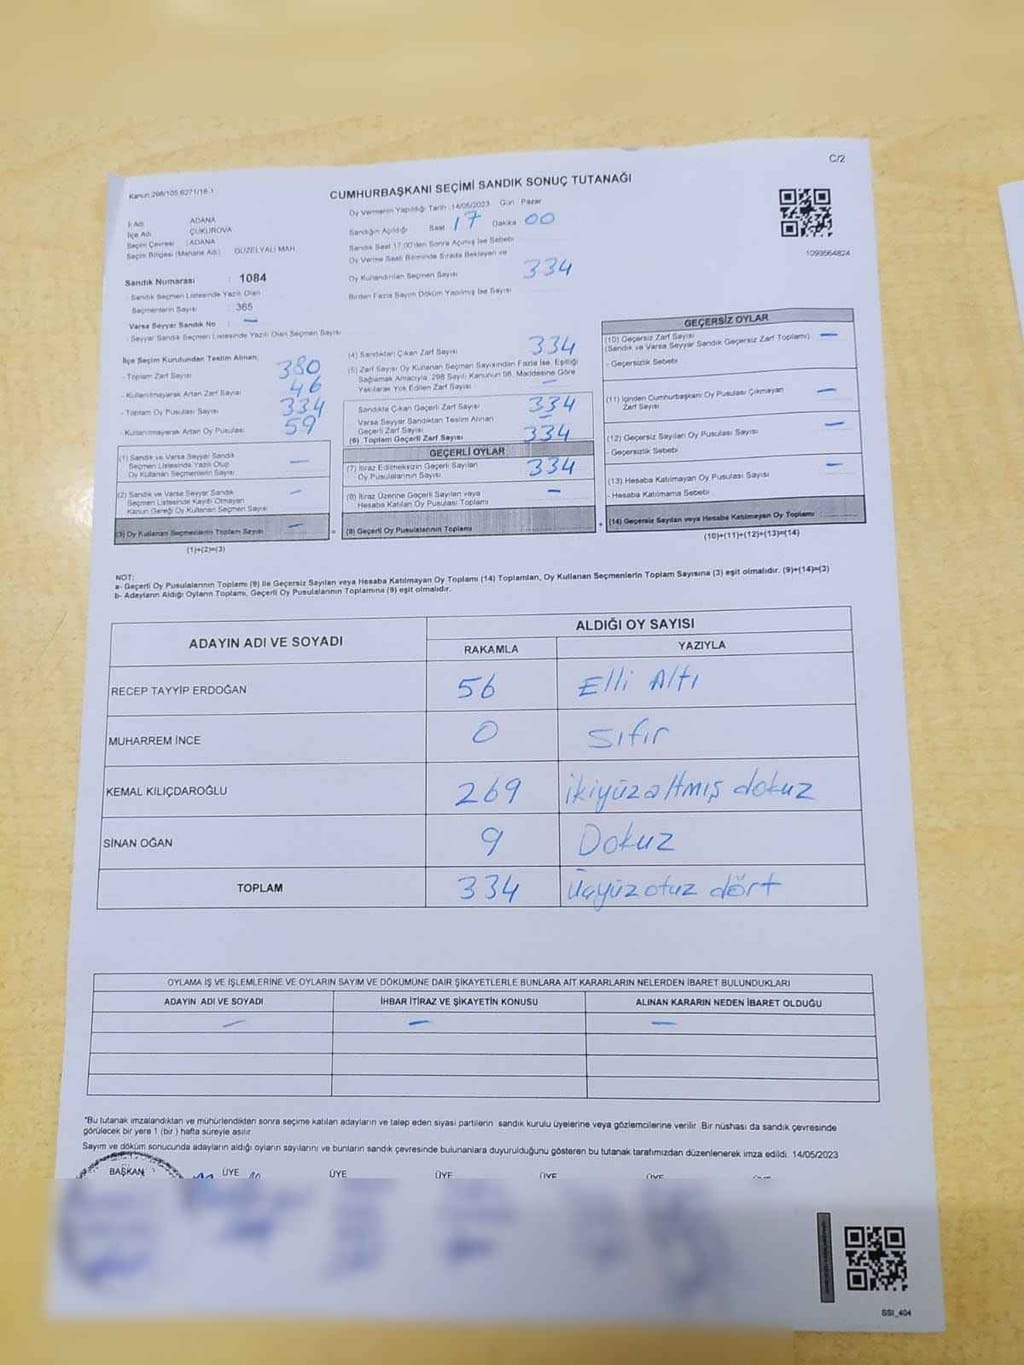 C/2
Kanun:298/105 6271/18-1
CUMHURBAŞKANI SEÇİMİ SANDIK SONUÇ TUTANAĞI
İl Adı : ADANA
İlçe Adı : ÇUKUROVA
Seçim Çevresi : ADANA
Seçim Bölgesi (Mahalle Adı) : GÜZELYALI MAH.
Oy Vermenin Yapıldığı Tarih :14/05/2023 Gün: Pazar
Sandığın Açıldığı Saat 17 Dakika 00
Sandık Saat 17:00'den Sonra Açılmış İse Sebebi
Oy Verme Saati Bitiminde Sırada Bekleyen ve
Oy Kullandırılan Seçmen Sayısı 334
Birden Fazla Sayım Döküm Yapılmış İse Sayısı
1093564824
Sandık Numarası : 1084
Sandık Seçmen Listesinde Yazılı Olan
Seçmenlerin Sayısı : 365
Varsa Seyyar Sandık No : -
Seyyar Sandık Seçmen Listesinde Yazılı Olan Seçmen Sayısı
İlçe Seçim Kurulundan Teslim Alınan;
- Toplam Zarf Sayısı 380
- Kullanılmayarak Artan Zarf Sayısı 46
- Toplam Oy Pusulası Sayısı 334
- Kullanılmayarak Artan Oy Pusulası 59
(1) Sandık ve Varsa Seyyar Sandık
Seçmen Listesinde Yazılı Olup
Oy Kullanan Seçmenlerin Sayısı -
(2) Sandık ve Varsa Seyyar Sandık
Seçmen Listesinde Kayıtlı Olmayan
Kanun Gereği Oy Kullanan Seçmen Sayısı -
(3) Oy Kullanan Seçmenlerin Toplam Sayısı -
(1)+(2)=(3)
(4) Sandıktan Çıkan Zarf Sayısı 334
(5) Zarf Sayısı Oy Kullanan Seçmen Sayısından Fazla İse, Eşitliği
Sağlamak Amacıyla, 298 Sayılı Kanunun 98. Maddesine Göre
Yakılarak Yok Edilen Zarf Sayısı -
Sandıkta Çıkan Geçerli Zarf Sayısı 334
Varsa Seyyar Sandıktan Teslim Alınan
Geçerli Zarf Sayısı -
(6) Toplam Geçerli Zarf Sayısı 334
GEÇERLİ OYLAR
(7) İtiraz Edilmeksizin Geçerli Sayılan
Oy Pusulalarının Sayısı 334
(8) İtiraz Üzerine Geçerli Sayılan veya
Hesaba Katılan Oy Pusulası Toplamı -
(9) Geçerli Oy Pusulalarının Toplamı
GEÇERSİZ OYLAR
(10) Geçersiz Zarf Sayısı
(Sandık ve Varsa Seyyar Sandık Geçersiz Zarf Toplamı) -
- Geçersizlik Sebebi
(11) İçinden Cumhurbaşkanı Oy Pusulası Çıkmayan
Zarf Sayısı -
(12) Geçersiz Sayılan Oy Pusulası Sayısı -
- Geçersizlik Sebebi
(13) Hesaba Katılmayan Oy Pusulası Sayısı -
- Hesaba Katılmama Sebebi
(14) Geçersiz Sayılan veya Hesaba Katılmayan Oy Toplamı
(10)+(11)+(12)+(13)=(14)
NOT:
a- Geçerli Oy Pusulalarının Toplamı (9) ile Geçersiz Sayılan veya Hesaba Katılmayan Oy Toplamı (14) Toplamları, Oy Kullanan Seçmenlerin Toplam Sayısına (3) eşit olmalıdır. (9)+(14)=(3)
b- Adayların Aldığı Oyların Toplamı, Geçerli Oy Pusulalarının Toplamına (9) eşit olmalıdır.
ADAYIN ADI VE SOYADI
ALDIĞI OY SAYISI
RAKAMLA YAZIYLA
RECEP TAYYİP ERDOĞAN 56 Elli Altı
MUHARREM İNCE 0 Sıfır
KEMAL KILIÇDAROĞLU 269 ikiyüzaltmış dokuz
SİNAN OĞAN 9 Dokuz
TOPLAM 334 Üçyüzotuz dört
OYLAMA İŞ VE İŞLEMLERİNE VE OYLARIN SAYIM VE DÖKÜMÜNE DAİR ŞİKAYETLERLE BUNLARA AİT KARARLARIN NELERDEN İBARET BULUNDUKLARI
ADAYIN ADI VE SOYADI İHBAR İTİRAZ VE ŞİKAYETİN KONUSU ALINAN KARARIN NEDEN İBARET OLDUĞU
- - -
*Bu tutanak imzalandıktan ve mühürlendikten sonra seçime katılan adayların ve talep eden siyasi partilerin sandık kurulu üyelerine veya gözlemcilerine verilir. Bir nüshası da sandık çevresinde
görülecek bir yere 1 (bir ) hafta süreyle asılır.
Sayım ve döküm sonucunda adayların aldığı oyların sayılarını ve bunların sandık çevresinde bulunanlara duyurulduğunu gösteren bu tutanak tarafımızdan düzenlenerek imza edildi. 14/05/2023
BAŞKAN ÜYE ÜYE ÜYE ÜYE ÜYE
SSI_404